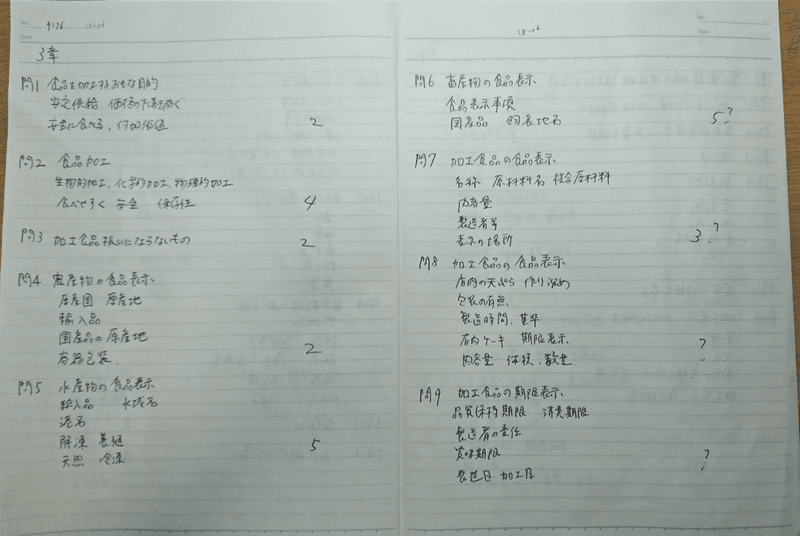 9:36 12:06
3章
問1 食品を加工するおもな目的
安定供給 価格の下落を防ぐ
安全に食べる、付加価値 2
問2 食品加工
生物的加工、化学的加工、物理的加工
食べやすく 安全 保存性 4
問3 加工食品扱いにならないもの 2
問4 農産物の食品表示
原産国 原産地
輸入品
国産品の原産地
容器包装 2
問5 水産物の食品表示
輸入品 水域名
港名
解凍 養殖
天然 冷凍 5
12:06
問6 畜産物の食品表示
食品表示事項
国産品 飼養地名 5?
問7 加工食品の食品表示
名称 原材料名 複合原材料
内容量
製造者等
表示の場所 3?
問8 加工食品の食品表示
店内の天ぷら 作り
包装の有無
製造時間、基準
店内ケーキ 期限表示
内容量 体積、数量 ?
問9 加工食品の期限表示
品質保持期限 消費期限
製造者の責任
賞味期限
製造日 加工日 ?